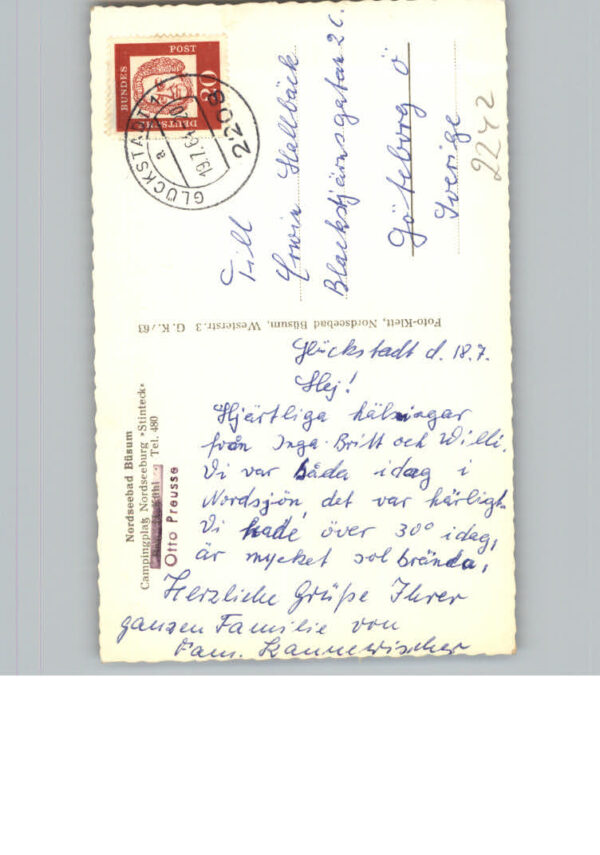 Nordseebad Büsum
Campingplatz Nordseeburg »Stinteck«
Tel. 480
Otto Preusse
Foto-Klett, Nordseebad Büsum, Westerstr. 3 G. K./63
DEUTSCHE
BUNDES
POST
20
GLÜCKSTADT
2208
a
Till
Erwin Hallbäck
Blackstjärnsgatan 2 C.
Göteborg Ö
Sverige
2242
Glückstadt d. 18.7.
Hej!
Hjärtliga hälsningar
från Inga-Britt och Willi.
Vi var båda idag i
Nordsjön, det var härligt.
Vi hade över 30° idag,
är mycket sol brända,
Herzliche Grüße Ihrer
ganzen Familie von
Fam. Kannewischer